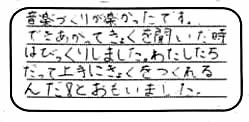 音楽づくりが楽かったです。
できあがってきょくを聞いた時
はびっくりしました。わたしたち
だって上手にきょくをつくれる
んだなとおもいました。